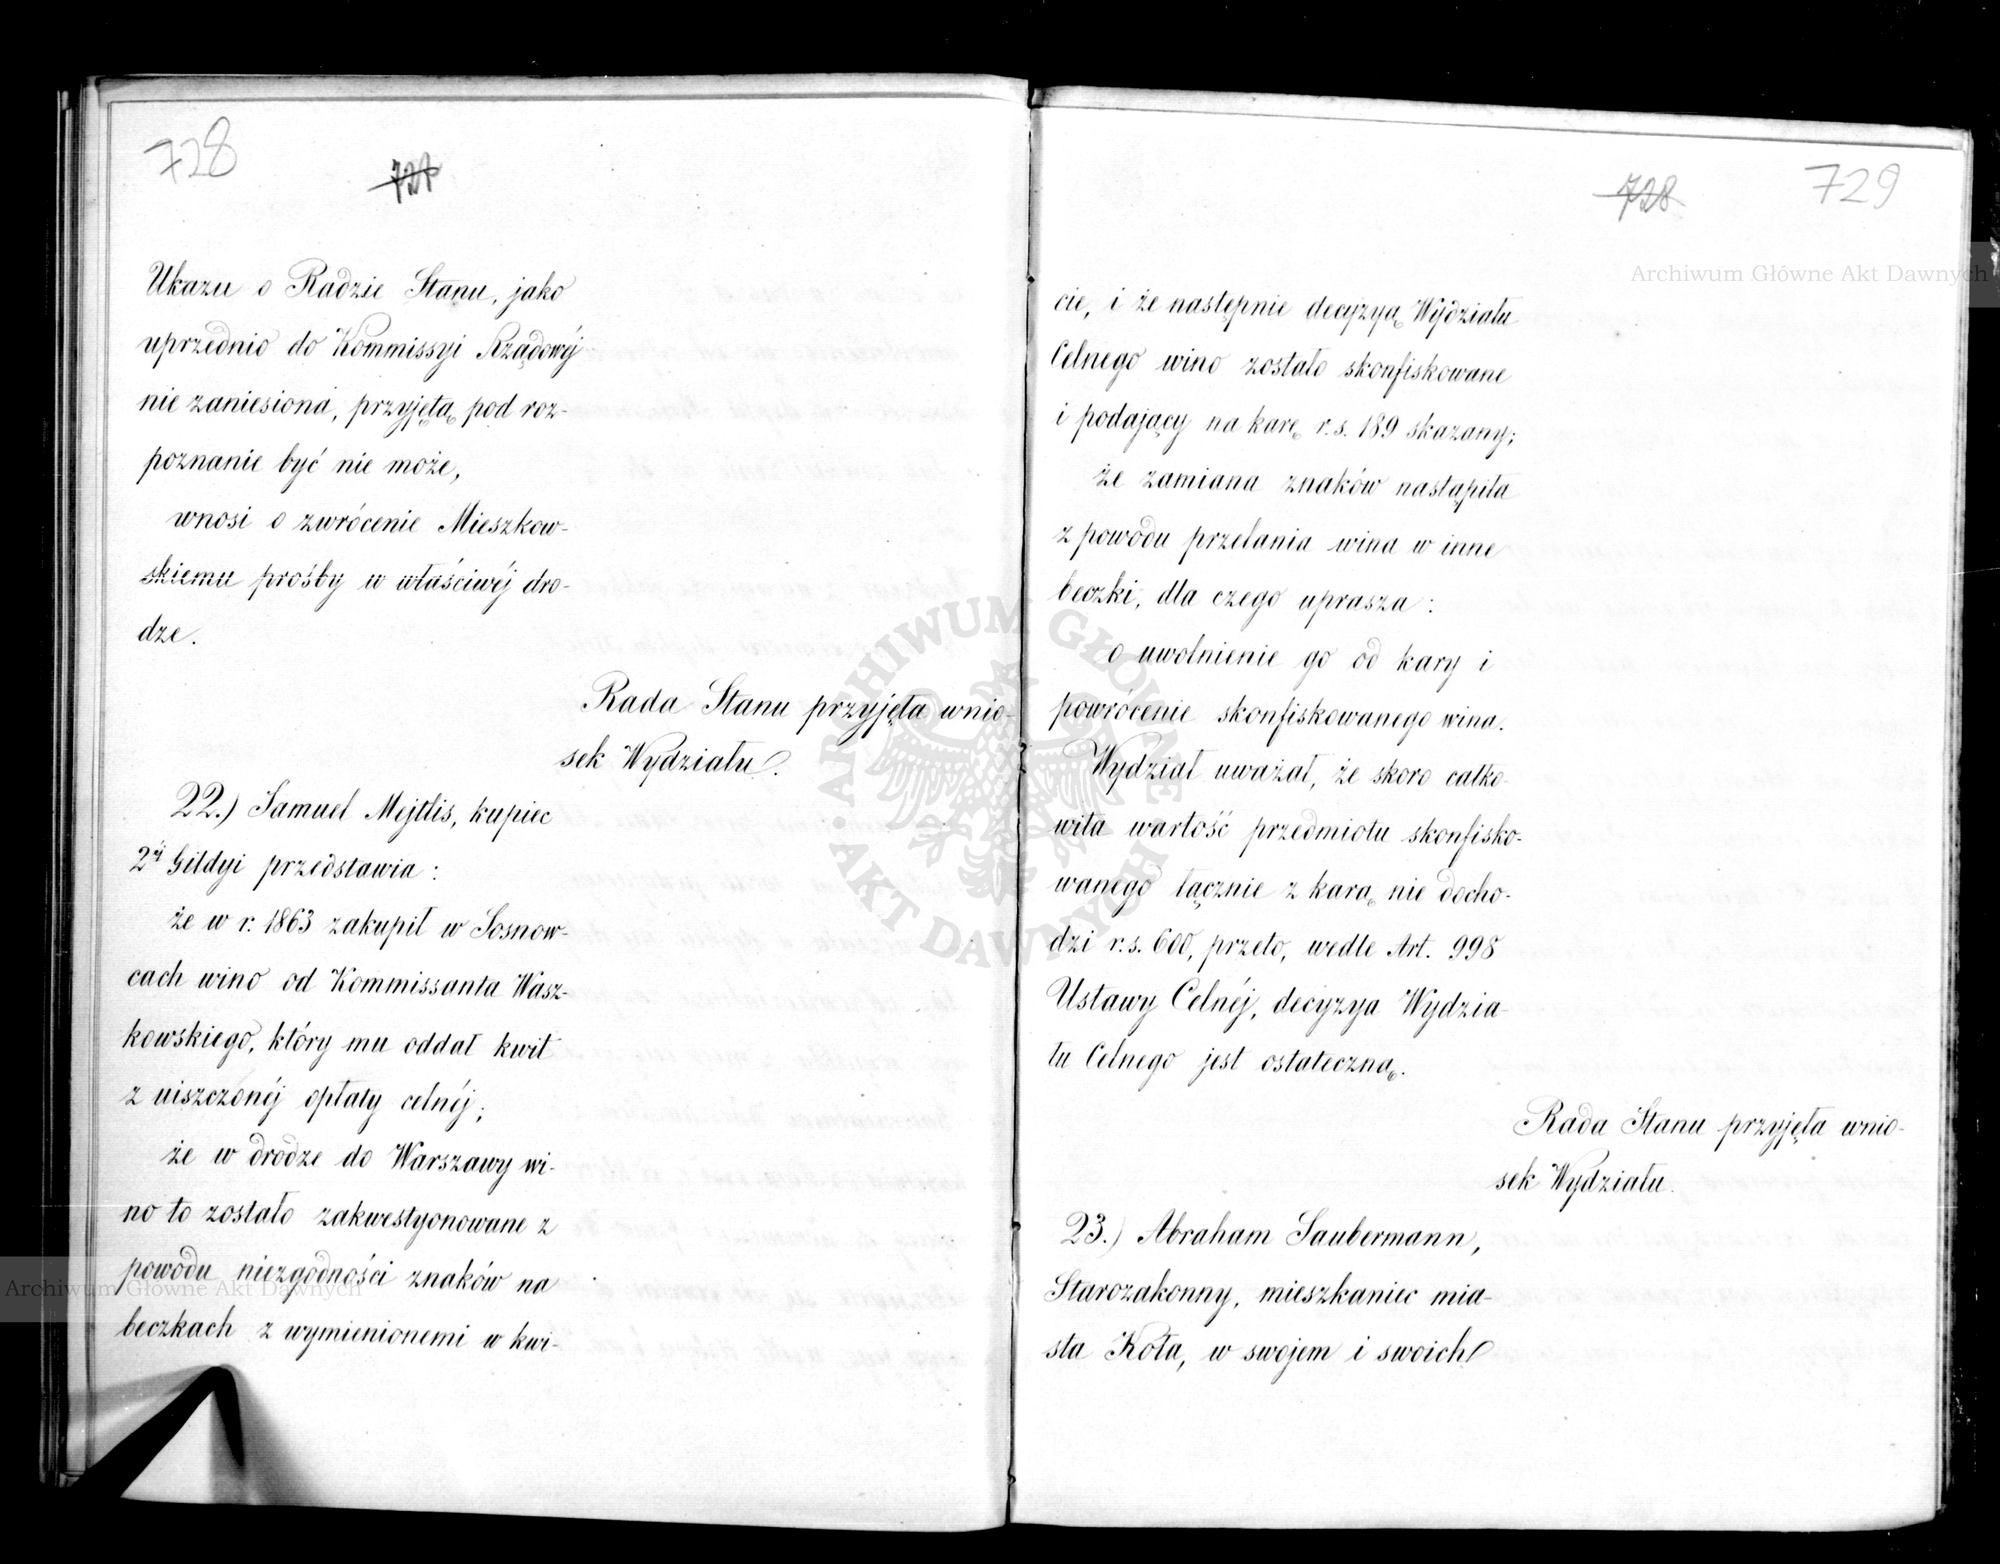 728
727
Ukazu o Radzie Stanu, jako
uprzednio do Kommissyi Rządowéj
nie zaniesiona, przyjętą pod roz-
poznanie być nie może,
wnosi o zwrócenie Mieszkow-
skiemu prośby w właściwéj dro-
dze.
Rada Stanu przyjęła wnio-
sek Wydziału.
22.) Samuel Mejtlis, kupiec
2éj Gildyi przedstawia:
że w r. 1863 zakupił w Sosnow-
cach wino od Kommissanta Wasz-
kowskiego, który mu oddał kwit
z uiszczonéj opłaty celnéj;
że w drodze do Warszawy wi-
no to zostało zakwestyonowane z
powodu niezgodności znaków na
beczkach z wymienionemi w kwi-
728
729
cie, i że następnie decyzyą Wydziału
Celnego wino zostało skonfiskowane
i podający na karę r.s. 189 skazany;
że zamiana znaków nastąpiła
z powodu przelania wina w inne
beczki, dla czego uprasza:
o uwolnienie go od kary i
powrócenie skonfiskowanego wina.
Wydział uważał, że skoro całko-
wita wartość przedmiotu skonfisko-
wanego łącznie z karą nie docho-
dzi r.s. 600, przeto, wedle Art. 998
Ustawy Celnéj, decyzya Wydzia-
łu Celnego jest ostateczną.
Rada Stanu przyjęła wnio-
sek Wydziału.
23.) Abraham Saubermann,
Starozakonny, mieszkaniec mia-
sta Koła, w swojem i swoich
Archiwum Główne Akt Dawnych
Archiwum Główne Akt Dawnych
ARCHIWUM GŁÓWNE AKT DAWNYCH